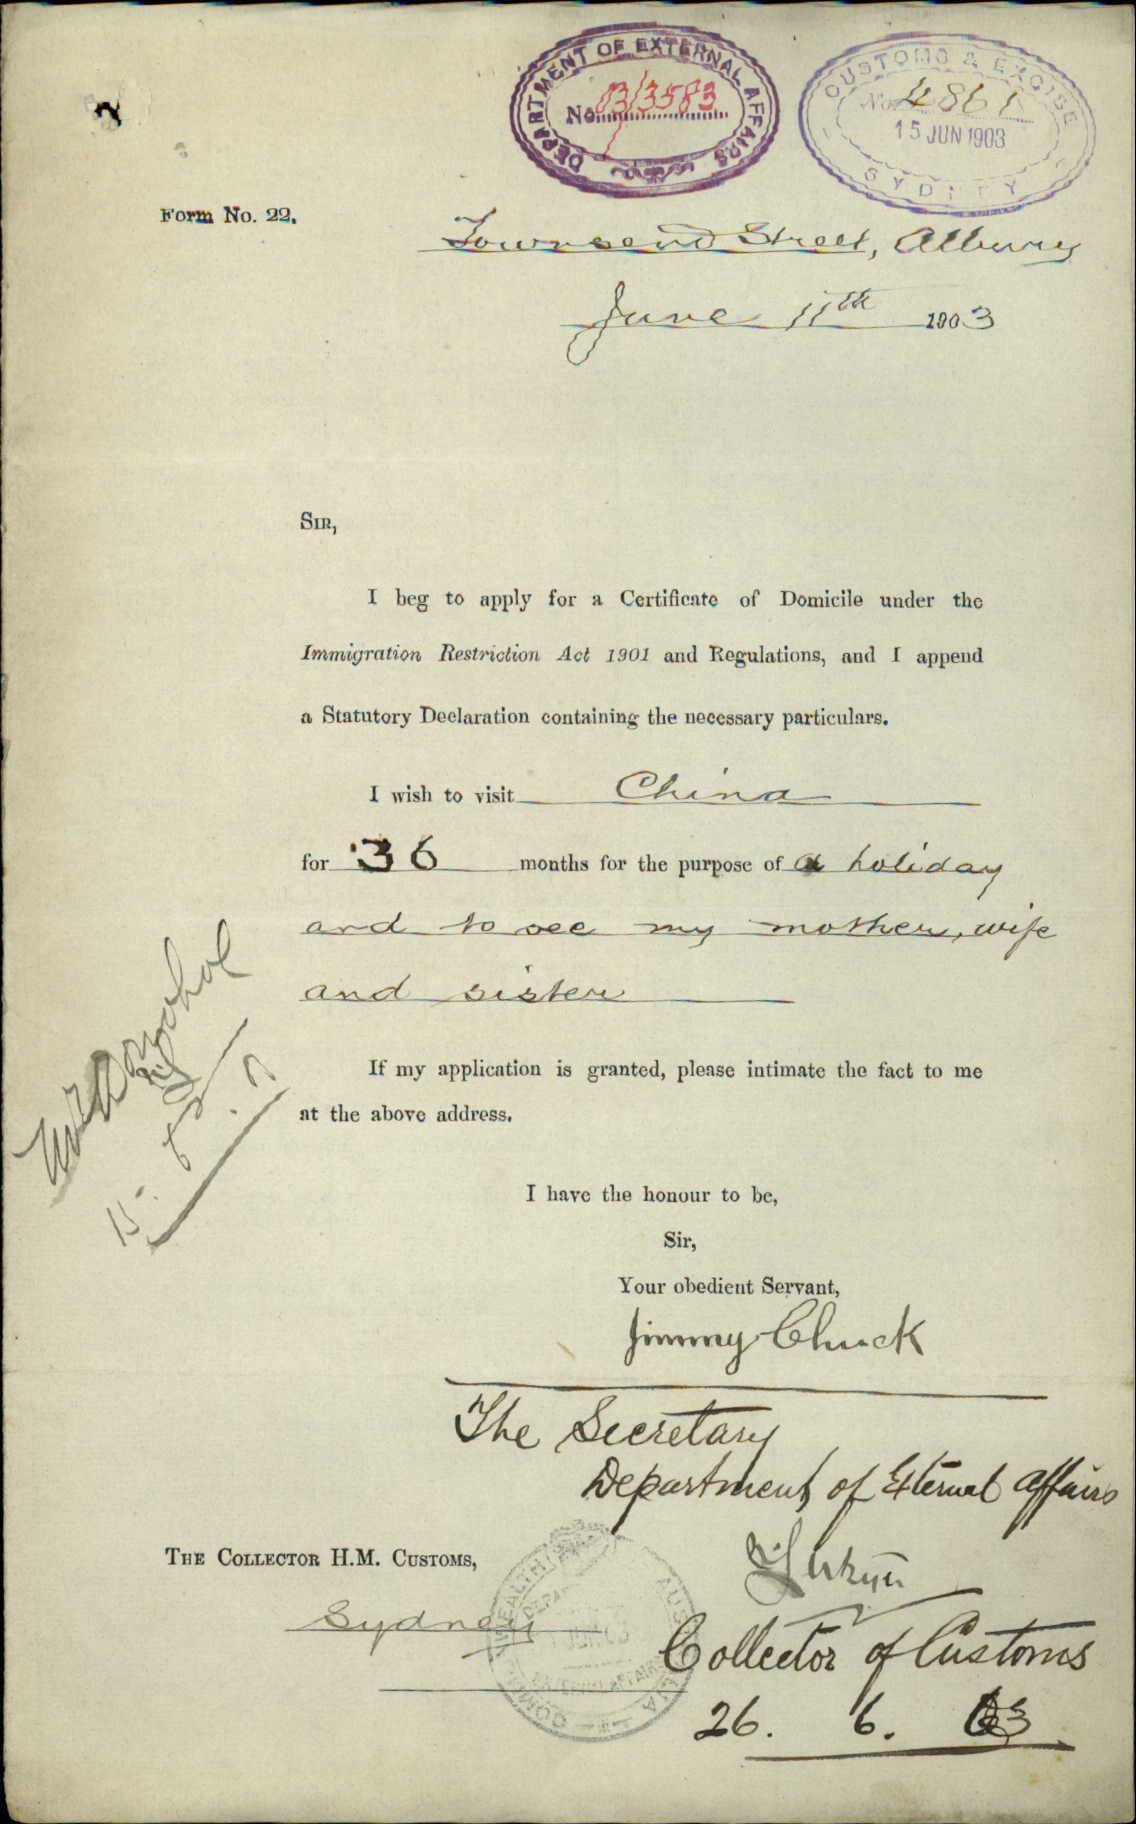 DEPARTMENT OF EXTERNAL AFFAIRS
No. 03/3583
CUSTOMS & EXCISE
No. 4861
15 JUN 1903
SYDNEY
Form No. 22.
Townsend Street, Albury
June 11th 1903
SIR,
I beg to apply for a Certificate of Domicile under the
Immigration Restriction Act 1901 and Regulations, and I append
a Statutory Declaration containing the necessary particulars.
I wish to visit China
for 36 months for the purpose of a holiday
and to see my mother, wife
and sister
If my application is granted, please intimate the fact to me
at the above address.
I have the honour to be,
Sir,
Your obedient Servant,
Jimmy Chuck
The Secretary
Department of External Affairs
THE COLLECTOR H.M. CUSTOMS,
Sydney
Collector of Customs
26. 6. 03